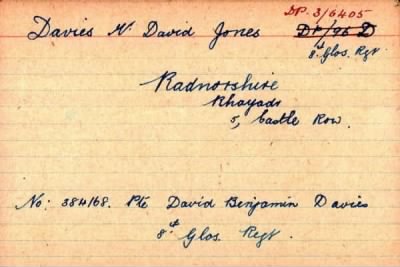 DP. 3/6405
Davies Mr David Jones DP/96 D
8th Glos. Regt
Radnorshire
Rhayadr
5, Castle Row.
No: 384168. Pte David Benjamin Davies
8th Glos. Regt.